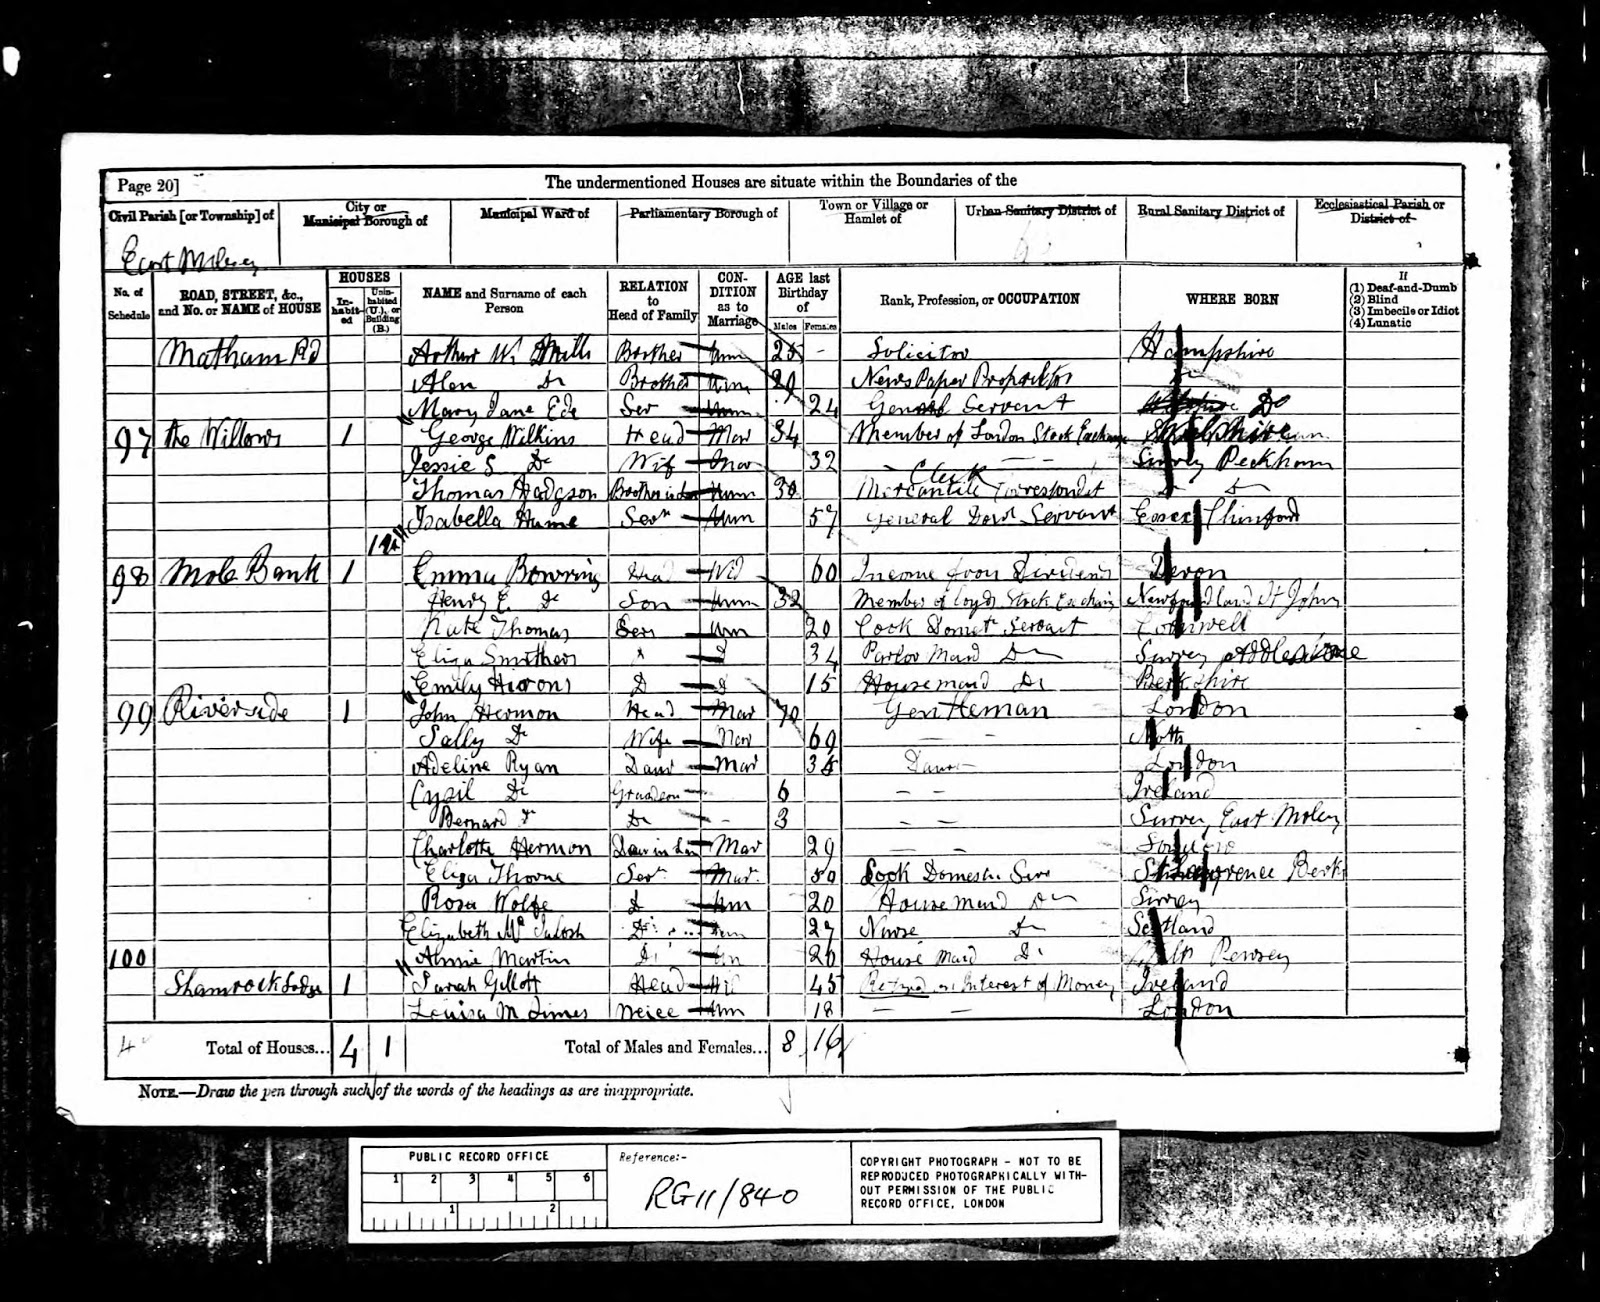 Page 20]
The undermentioned Houses are situate within the Boundaries of the
Civil Parish [or Township] of
City or Municipal Borough of
Municipal Ward of
Parliamentary Borough of
Town or Village or Hamlet of
Urban Sanitary District of
Rural Sanitary District of
Ecclesiastical Parish or District of
East Molesey
No. of Schedule
ROAD, STREET, &c., and No. or NAME of HOUSE
HOUSES
In-habit-ed
Unin-habited (U.), or Building (B.)
NAME and Surname of each Person
RELATION to Head of Family
CON-DITION as to Marriage
AGE last Birthday of
Males Females
Rank, Profession, or OCCUPATION
WHERE BORN
If
(1) Deaf-and-Dumb
(2) Blind
(3) Imbecile or Idiot
(4) Lunatic
Matham Rd Arthur W. Mills Brother Unm 25 - Solicitor Hampshire
Alen Do Brother Unm 29 News Paper Proprietor Do
Mary Jane Ede Ser Unm 24 General Servant Do
97 the Willows 1 George Wilkins Head Mar 34 Member of London Stock Exchange
Jessie S Do Wife Mar 32 Surrey Peckham
Thomas Hodgson Brother in Law Unm 30 Mercantile Clerk Correspondet Do Do
Isabella Hume Servt Unm 57 General Dom Servant Essex Chinford
98 Mole Bank 1 Emma Bowring Head Wid 60 Income from Dividends Devon
Henry E. Do Son Unm 32 Member of Stock Exchang Newfoundland St Johns
Kate Thomas Serv Unm 20 Cook Domet Servant Cornwell
Eliza Smithers Do Do 34 Parlor Maid Do Surrey Addlestone
Emily Hirons D Do 15 House maid Do Berkshire
99 Riverside 1 John Hermon Head Mar 70 Gentleman London
Sally Do Wife Mar 69 — — Notts
Adeline Ryan Daur Mar 35 Daur London
Cyril Do Grandson 6 — — Ireland
Bernard Do Do - 3 — — Surrey, East Molesey
Charlotte Hermon Daur in Law Mar 29 — —
Eliza Thorne Servt Mar. 50 Cook Domestic Serv Berks
Rosa Wolfe D Unm 20 House Maid Do Surrey
Elizabeth McIntosh Do Unm 27 Nurse Do Scotland
100 Annie Martin Do Unm 26 House Maid Do
Shamrock Lodge 1 Sarah Gillott Head Wid 45 Interest of Money Ireland
Louisa M. Neice Unm 18 — — London
Total of Houses... 4 1 Total of Males and Females... 8 16
NOTE.—Draw the pen through such of the words of the headings as are inappropriate.
PUBLIC RECORD OFFICE
1 2 3 4 5 6
1 2
Reference:-
RG11/840
COPYRIGHT PHOTOGRAPH - NOT TO BE
REPRODUCED PHOTOGRAPHICALLY WITH-
OUT PERMISSION OF THE PUBLIC
RECORD OFFICE, LONDON